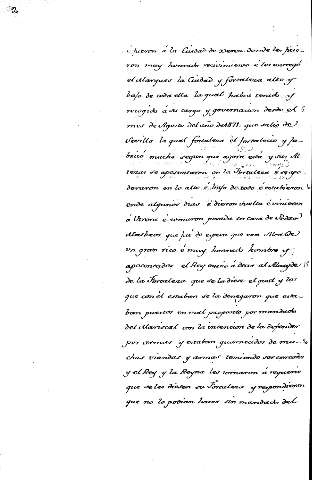 2
fueron á la Ciudad de Xerez donde les hicie-
ron muy honrado recivimiento é les entregó
el Marques la Ciudad y fortaleza alto y
bajo de toda ella la qual había tenido y
recogido á su cargo y governacion desde el
mes de Agosto del año de 1471 que salió de
Sevilla la qual fortaleza el fortaleció y fa-
bricó mucho segun que agora está y sus Al-
tezas se aposentaron en la fortaleza é se apo-
deraron en lo alto é bajo de todo é estubieron
ende algunos dias é dieron vuelta é vinieron
á Utrera é tomaron posada en casa de
que
un gran rico é muy honrado hombre y
aposentados el Rey envió á decir al Alcayde
de la fortaleza que se la diese el qual y los
que con él estaban se la denegaron que esta-
ban puestos en mal proposito por mandado
del Mariscal con la intencion de la defender
por armas y estaban guarnecidos de mu-
chas viandas y armas temiendo ser cercados
y el Rey y la Reyna les tornaron á requerir
que se les diesen su fortaleza y respondieron
que no lo podian hacer sin mandado del